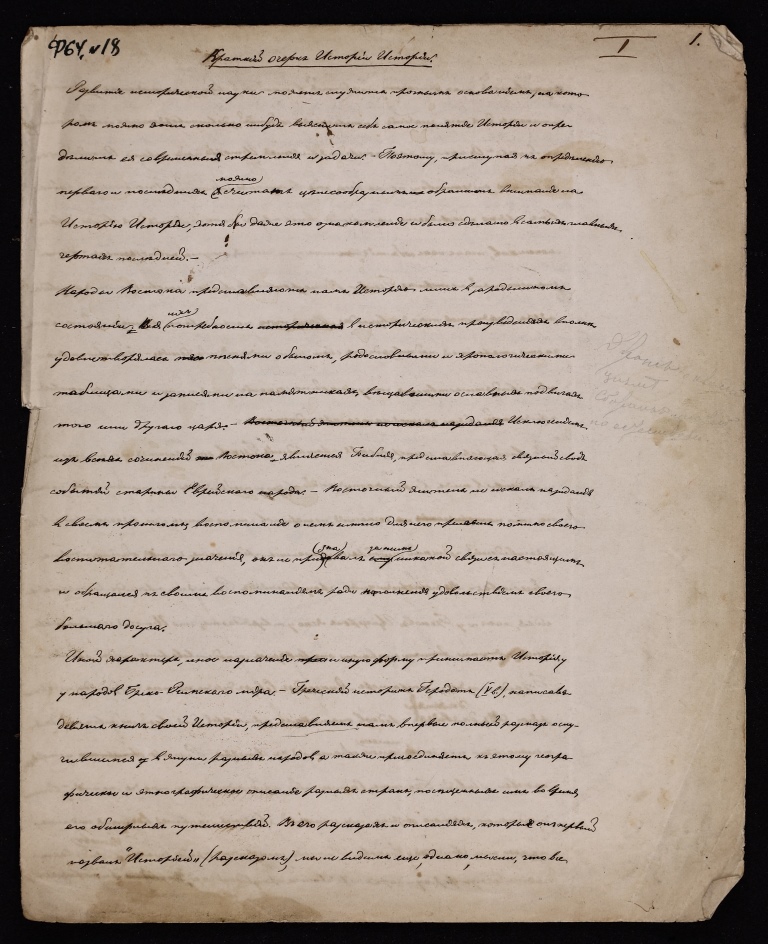 Ф64, №18
I
1.
Краткій очеркъ Исторіи Исторіи.
Развитіе исторической науки можетъ служить прочнымъ основаніемъ, на кото-
ромъ можно хоть сколько нибудь выяснить себѣ самое понятіе Исторіи и опре-
дѣлить ея современныя стремленія и задачи. Поэтому, приступая къ опредѣленію
перваго и послѣднихъ можно считать цѣлесообразнымъ обратить вниманіе на
Исторію Исторіи, хотя бы даже это ознакомленіе и было сдѣлано въ самыхъ главныхъ
чертахъ послѣдней. —
Народы Востока представляютъ намъ Исторію лишь въ зародышномъ
состояніи; ихъ потребность въ историческихъ произведеніяхъ вполнѣ
удовлетворялась пѣснями о быломъ, родословными и хронологическими
таблицами и записями на памятникахъ, вѣщавшими о славныхъ подвигахъ
того или другаго царя. — Исключеніемъ
изъ всѣхъ сочиненій Востока является Библія, представляющая связный сводъ
событій старины Еврейскаго народа. — Восточный житель не искалъ назиданія
въ своемъ прошломъ; воспоминаніе о немъ имѣло для него прелесть помимо своего
воспитательнаго значенія, онъ не признавалъ за нимъ никакой связи съ настоящимъ
и обращался къ своимъ воспоминаніямъ ради наполненія удовольствіемъ своего
большаго досуга.
Иной характеръ, иное назначеніе и иную форму принимаетъ Исторія
у народовъ Греко-Римскаго міра. — Греческій историкъ Геродотъ (V в), написавъ
девять книгъ своей Исторіи, представляетъ намъ впервые полный разсказъ о слу-
чившемся въ жизни разныхъ народовъ, а также присоединяетъ къ этому геогра-
фическое и этнографическое описаніе разныхъ странъ, посѣщенныхъ имъ во время
его обширныхъ путешествій. Въ его разсказахъ и описаніяхъ, которые онъ первый
назвалъ "Исторіей" (разсказомъ), мы не видимъ еще, однако, мысли, что все